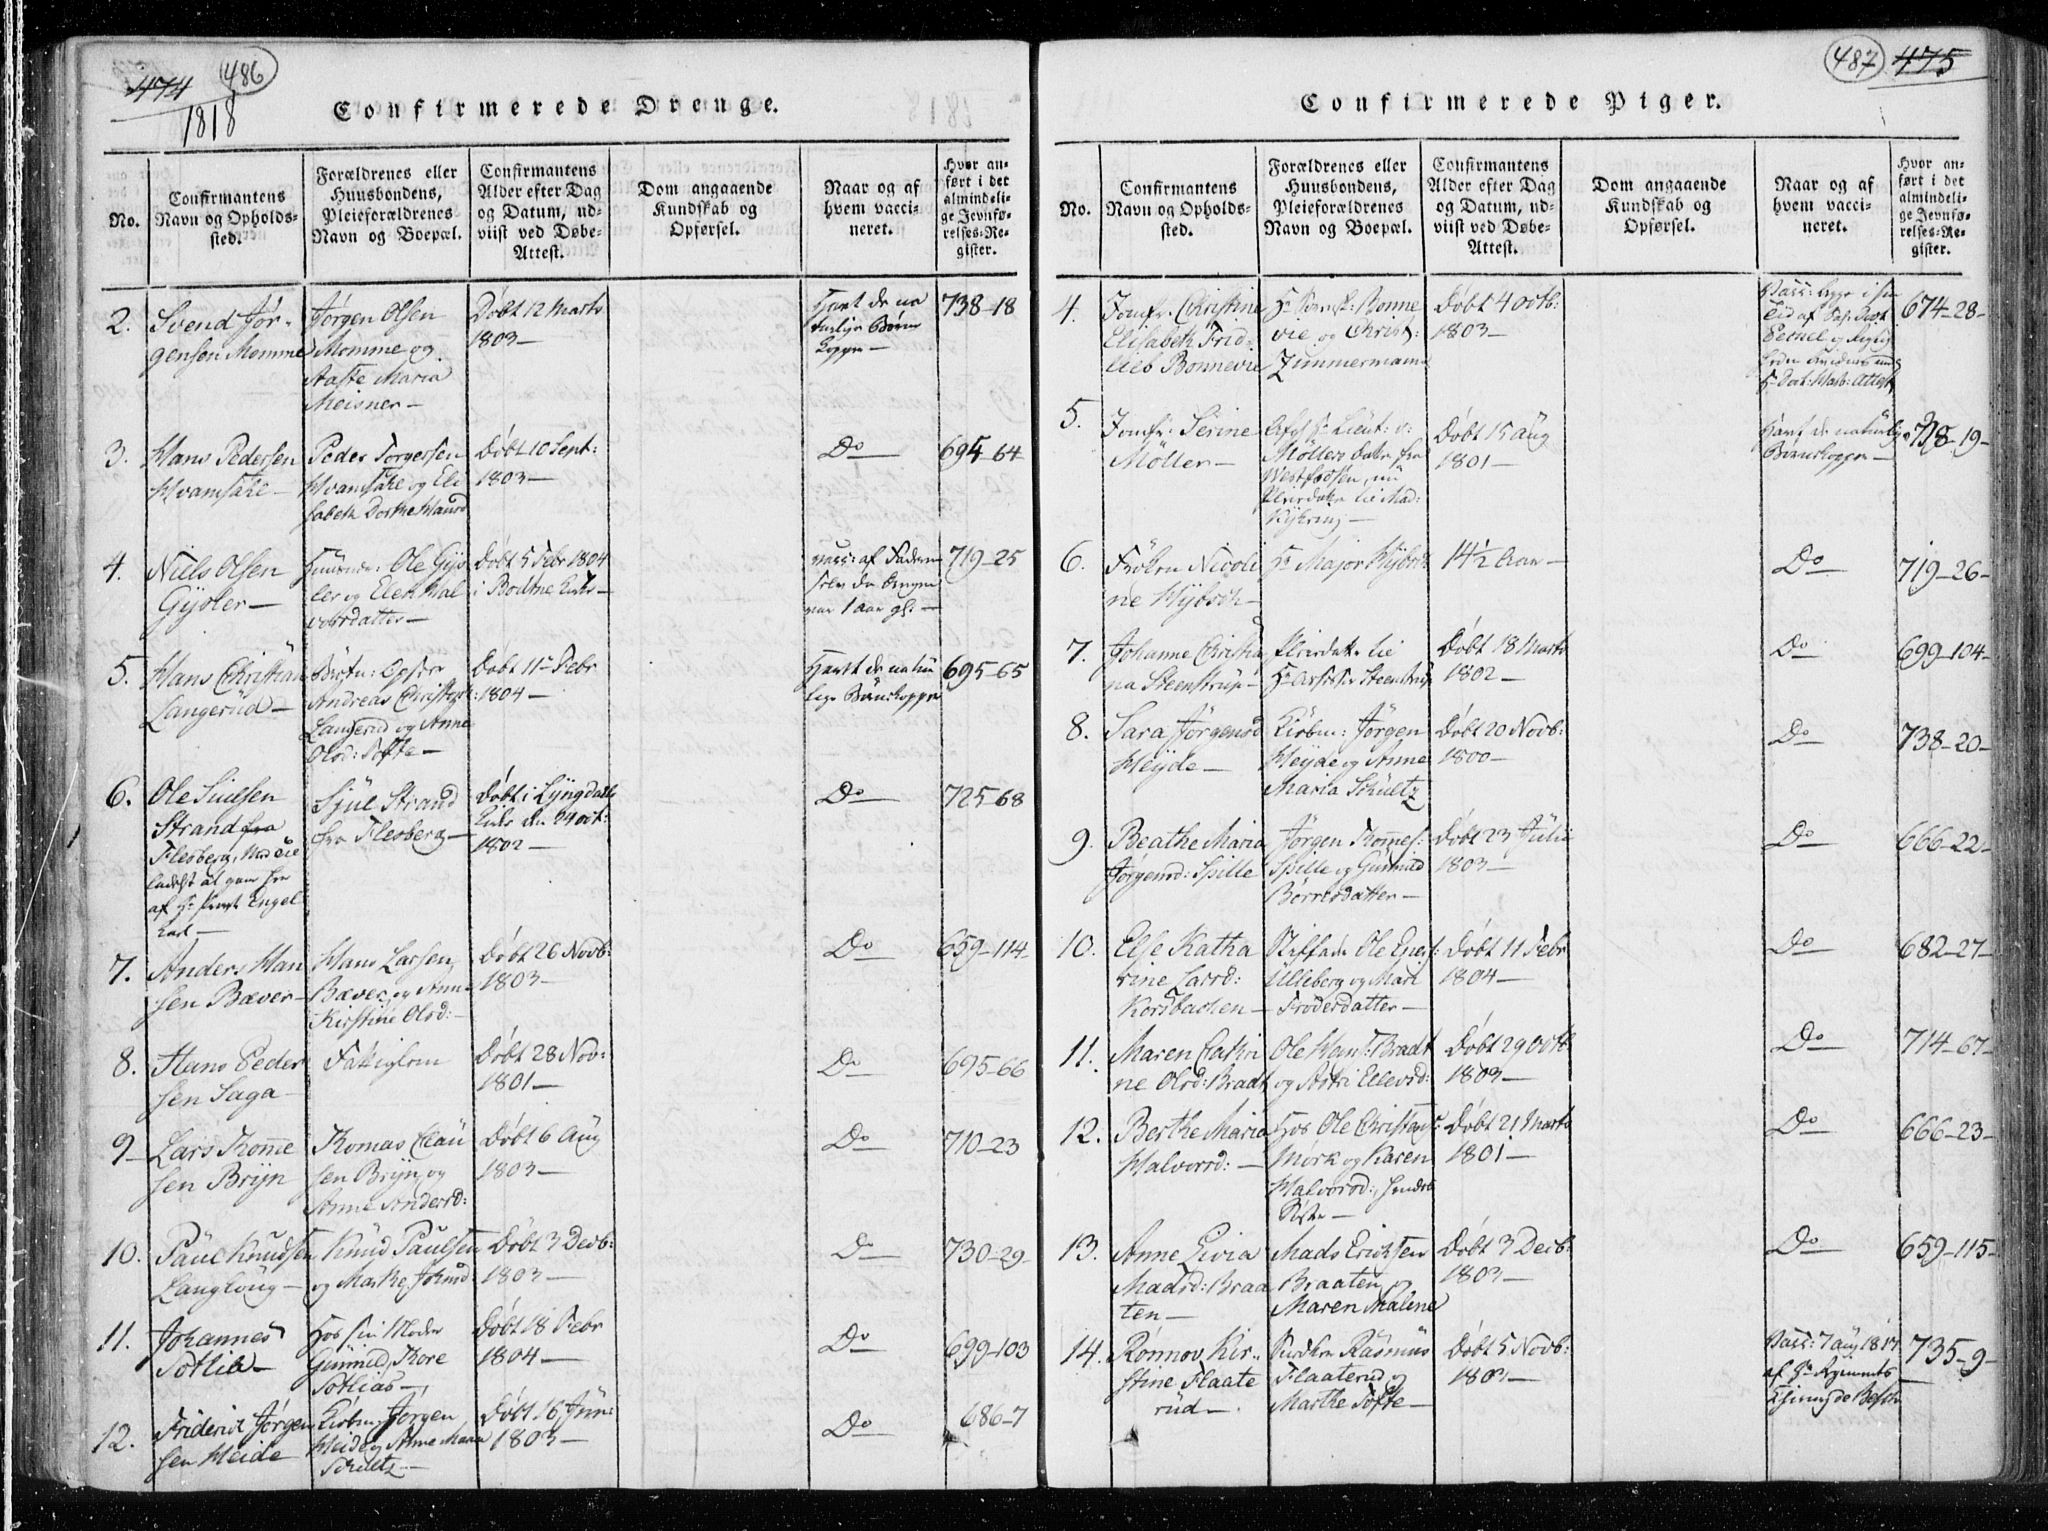 474
486
1818
Confirmerede Drenge.
No.
Confirmantens
Navn og Opholds-
sted.
Forældrenes eller
Huusbondens,
Pleieforældrenes
Navn og Boepæl.
Confirmantens
Alder efter Dag
og Datum, ud-
viist ved Døbe-
Attest.
Dom angaaende
Kundskab og
Opførsel.
Naar og af
hvem vacci-
neret.
Hvor an-
ført i det
almindeli-
ge Jevnfø-
relses-Re-
gister.
2.
Svend Jør-
gensen Momme
Jørgen Olsen
Momme og
Aaste Maria
Meisner
Døbt 12 Marts
1803
738-18
3.
Hans Pedersen
Hvamsahl
Peder Torgersen
Hvamsahl og Eli
sabeth Dorthe
Døbt 10 Sept:
1803
Do
694-64
4.
Niels Olsen
Gijsler
Ole Gijs
ler og Elen Hal
vorsdatter
Døbt 5 Febr 1804
719-25
5.
Hans Christian
Langerud
Andreas
Langerud og Anne
Olsd: Tofte
Døbt 11 Febr
1804
695-65
6.
Ole Siulsen
Strand fra
Flesberg,
Sjul Strand
fra Flesberg
Døbt i Lyngdahls
1802
Do
725-68
7.
Anders Han
sen Bæver
Hans Larsen
Bæver og Anne
Kirstine Olsd:
Døbt 26 Novb:
1803
Do
659-114
8.
Hans Peder
sen Saga
Døbt 28 Nov:
1801
Do
695-66
9
Lars Thome
sen Brijn
Thomas Clau
sen Bryn og
Anne Andersd:
Døbt 6 Aug
1803
Do
710-23
10.
Paul Knudsen
Langloug
Knud Paulsen
og Marthe Johnsd:
Døbt 3 Decb:
1803
Do
730-29
11.
Johannes
Sotlia
Hos sin Moder
Gunnild Thore
Sotlias
Døbt 18 Febr
1804
Do
699-103
12.
Friderik Jørgen
sen Heide
Jørgen
Heide og Anne Maria
Schultz
Døbt 16 Jun:
1803
Do
686-7
487
475
Confirmerede Piger.
No.
Confirmantens
Navn og Opholds-
sted.
Forældrenes eller
Huusbondens,
Pleieforældrenes
Navn og Boepæl.
Confirmantens
Alder efter Dag
og Datum, ud-
viist ved Døbe-
Attest.
Dom angaaende
Kundskab og
Opførsel.
Naar og af
hvem vacci-
neret.
Hvor an-
ført i det
almindeli-
ge Jevnfø-
relses-Re-
gister.
4.
Jomfr. Christine
Elisabeth Frid-
lieb Bonnevie
Bonne
vie og Christ:
Zimmermann
Døbt 4 Octb:
1803
674-28
5.
Jomfr. Serine
Möller
Døbt 15 Aug
1801
718-19
6.
Frøken Nicoli
ne Hybsch
Hr Major Hybsch
14½ Aar
Do
719-26
7.
Johanne Christia
na Steenstrup
Døbt 18 Marts
1802
Do
699-104
8.
Sara Jørgensd
Heyde
Jørgen
Heyde og Anne
Maria Schultz
Døbt 20 Novb:
1800
Do
738-20
9.
Beathe Maria
Jørgensd: Spille
Jørgen Thomes:
Spille og Gunnild
Børresdatter
Døbt 23 Julii
1803
Do
666-22
10.
Else Katha
rine Larsd:
Korsbachen
Ulleberg og Mari
Frodesdatter
Døbt 11 Febr
1804
Do
682-27
11.
Maren Cathri
ne Olsd: Bradt
Ole Hans: Bradt
og Astri Ellevsd:
Døbt 29 Octb
1803
Do
714-67
12.
Berthe Maria
Halvorsd:
Hos Ole Christens:
Mork og Karen
Halvorsd:
Døbt 21 Marts
1801
Do
666-23
13.
Anne Livia
Madsd: Braa
ten
Mads Erichsen
Braaten og
Maren Malene
Døbt 3 Decb:
1803
Do
659-115
14.
Rønnov Kir-
stine Flaate
rud
Rasmus
Flaaterud og
Marthe Tofte
Døbt 5 Novb:
1803
735-9